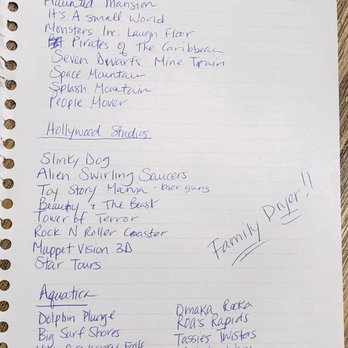 Haunted Mansion
It's A Small World
Monsters Inc. Laugh Floor
Pirates of The Caribbean
Seven Dwarfs Mine Train
Space Mountain
Splash Mountain
People Mover
Hollywood Studios
Slinky Dog
Alien Swirling Saucers
Toy Story Mania - laser guns
Beauty + The Beast
Tower of Terror
Rock N Roller Coaster
Muppet Vision 3D
Star Tours
Family Dryer!!
Aquatica
Dolphin Plunge
Big Surf Shores
Omaka Rocka
Roa's Rapids
Tassies Twisters